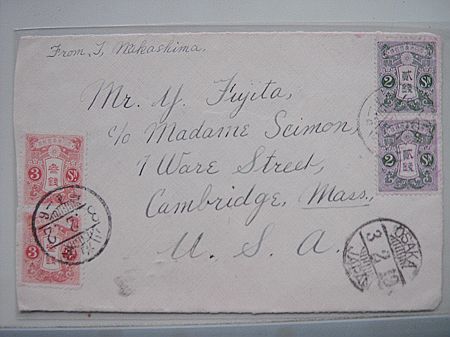 From T, Nakashima.
Mr. Y. Fujita,
c/o Madame Scimon,
7 Ware Street,
Cambridge, Mass.,
U. S. A.
2 Sn
貳銭
2 Sn
貳銭
3 Sn
参銭
3 Sn
OSAKA
JAPAN